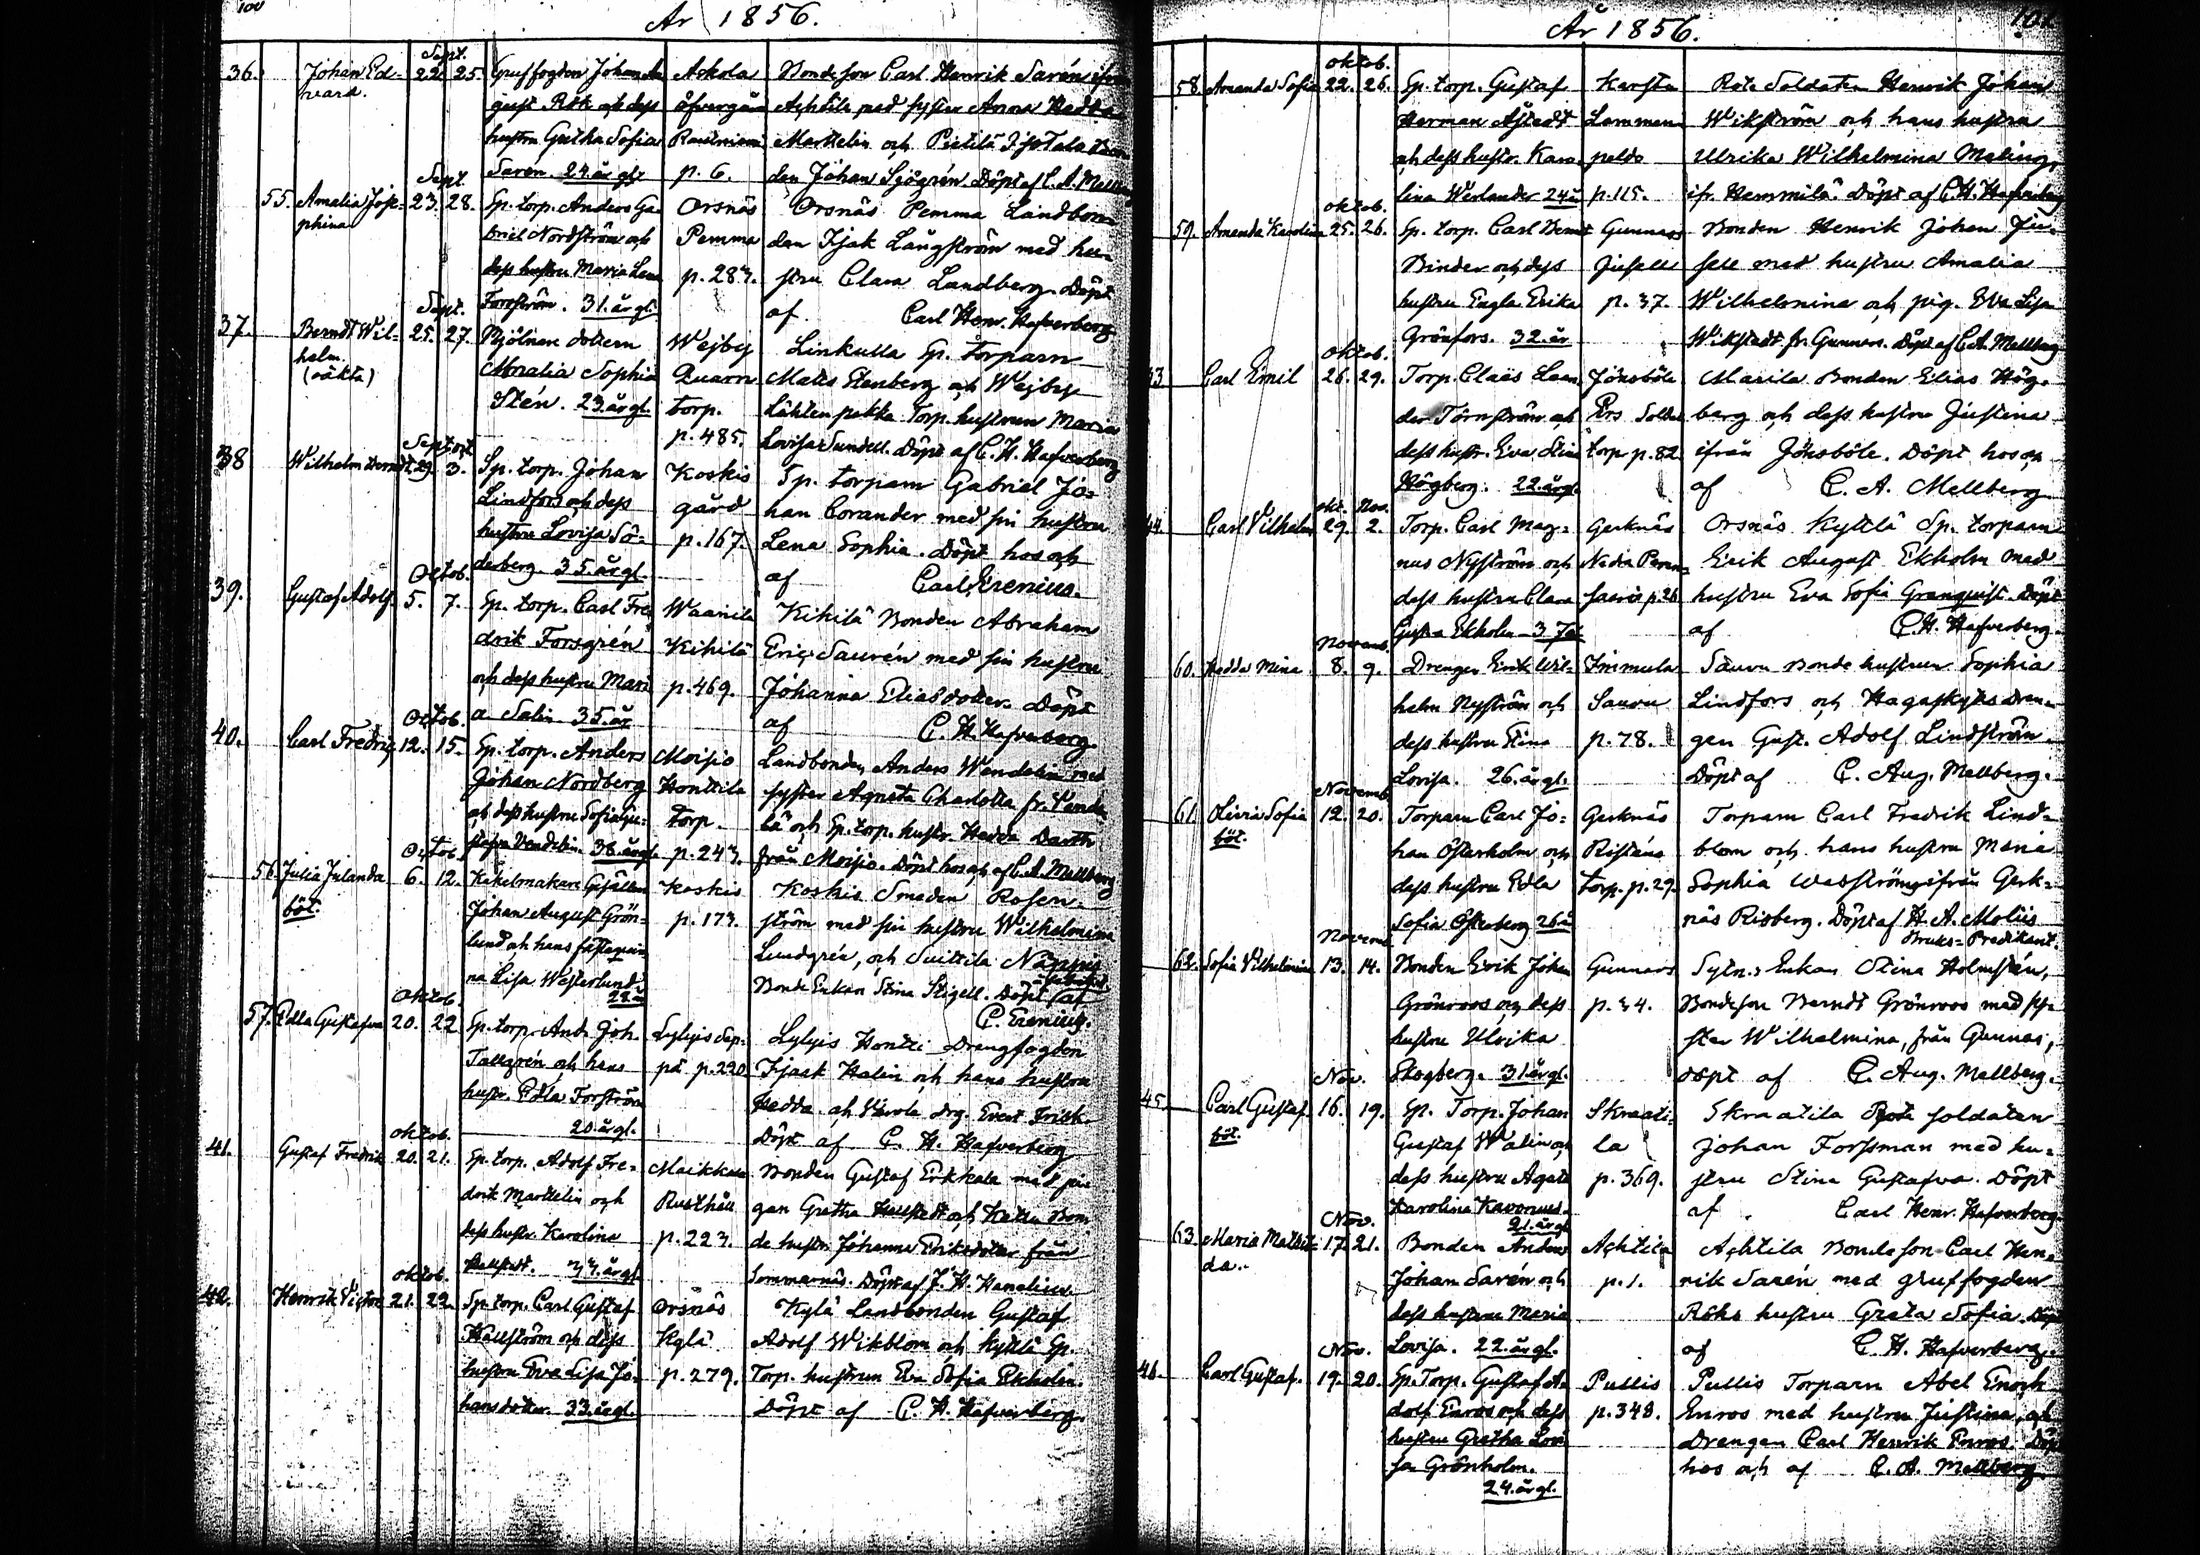 100
År 1856.
36. Johan Ed-
vard.
Sept.
22. 25.
Gruffogden Johan Au
gust Rök och dess
hustru Gretha Sofia
Sarén 24 år gl.
Askola
öfvergån
Rautniemi
p. 6.
Bondeson Carl Henrik Sarén ifrån
Achtila med syster Anna Hedda
Martelin och Pietilä
den Johan Sjögrén Döpt af C. A. Mellberg
55. Amalia Jose-
phina
Sept.
23. 28.
Sp. torp. Anders Ga-
briel Nordström och
dess hustru Maria Lena
Forsström. 31. år gl.
Orsnäs
Pemma
p. 287.
Orsnäs Pemma Landbon-
den Isak Långström med hu-
stru Clara Landberg. Döpt
af Carl Henr. Hafverberg
37. Berndt Wil-
helm.
(oäkta)
Sept.
25. 27.
Mjölnare dottern
Amalia Sophia
Stén. 23. år gl.
Wejby
Quarn
torp.
p. 485.
Linkulla Sp. Torparn
Matts Stenberg och Wejby
Lähtenpekka Torp. hustrun Maria
Lovisa Sundell. Döpt af C. H. Hafverberg
38 Wilhelm Berndt
Sept. oct.
29. 3.
Sp. torp. Johan
Lindfors och dess
hustru Lovisa Sö-
derberg. 35. år gl.
Koskis
gård
p. 167.
Sp. torparn Gabriel Jo-
han Corander med sin hustru
Lena Sophia. Döpt hos och
af Carl Erenius.
39. Gustaf Adolf
Octob.
5. 7.
Sp. torp. Carl Fre
drik Forsgrén
och dess hustru Mari
a Salin 35. år
Waanila
Kihilä
p. 469.
Kihilä Bonden Abraham
Eric Saurén med sin hustru
Johanna Eliasdotter. Döpt
af C. H. Hafverberg.
40. Carl Fredric
Octob.
12. 15.
Sp. torp. Anders
Johan Nordberg
och dess hustru Sofia Gu-
stafva Vendelin. 38. år gl.
Moisio
Honttila
Torp.
p. 243.
Landbonden Anders Wendelin med
syster Agneta Charlotta fr.
och Sp. torp. hustr. Hedda Darth
från Moisio. Döpt hos och af C. A. Mellberg
56. Julia Julanda
böt.
Octob.
6. 12.
Kakelmakare Gesällen
Johan August Grön-
lund och hans fästeqvin
na Lisa Westerlund.
22 år
Koskis
p. 173.
Koskis Smeden Rosen-
ström med sin hustru Wilhelmina
Lundgrén, och Suittila Näppis
Bonde Enkan Stina Stigell. Döpt af
C. Erenius.
57. Edla Gustafva
Oktob.
20. 22
Sp. torp. And. Joh.
Tallgrén och hans
hustr. Edla Forström
20. år gl.
Lylyis Sep-
pä p. 220
Lylyis Hontti Drengfogden
Isack Halin och hans hustru
Hedda och Varola drg. Evert Frisk.
Döpt af C. H. Hafverberg
41. Gustaf Fredrik
Oktob.
20. 21.
Sp. torp. Adolf Fre-
drik Martelin och
dess hustr. Karolina
Hallstedt. 33. år gl.
Maikkala
Rusthåll
p. 223.
Bonden Gustaf Erkkala med pi-
gan Gretha Hallstedt och Bon-
de hustr. Johanna Eriksdotter från
Sommarnäs. Döpt af J. H. Hanelius.
42. Henrik Victor
Oktob.
21. 22.
Sp. torp. Carl Gustaf
Hallström och dess
hustru Eva Lisa Jo-
hansdotter. 33. år gl.
Orsnäs
Kylä
p. 279.
Kylä Landbonden Gustaf
Adolf Wikblom och Kyttlä Sp.
Torp. hustrun Eva Sofia Ekholm.
Döpt af C. H. Hafverberg.
101.
År 1856.
58. Amanda Sofia
Oktob.
22. 26.
Sp. torp. Gustaf
Herman Åstedt
och dess hustr. Karo-
lina Werlander 24 å
Karstu
Lammen
peldo
p. 115.
Rote Soldaten Henrik Johan
Wikström och hans hustru
Ulrika Wilhelmina Maling,
ifr. Hemmilä. Döpt af C. H. Hafverberg
59. Amanda Karolina
Oktob.
25. 26.
Sp. torp. Carl Bernt
Binder och dess
hustru Eagla Erika
Grönfors. 32. år
Gunnars
Jusell
p. 37.
Bonden Henrik Johan Ju-
sell med hustru Amalia
Wilhelmina och pig. Eva Lisa
Wikstedt fr. Gunnars. Döpt af C. A. Mellberg
43. Carl Emil
Oktob.
26. 29.
Torp. Claës Lean
der Törnström och
dess hustr. Eva Stina
Högberg. 22. år gl.
Jönsböle
Prs Soldat
torp p. 82
Marila Bonden Elias Hög-
berg och dess hustru Justina
ifrån Jönsböle. Döpt hos och
af C. A. Mellberg
44. Carl Vilhelm
okt. Nov.
29. 2.
Torp. Carl Mag-
nus Nyström och
dess hustru Clara
Gusta Ekholm 37 å
Gerknäs
Nedra Peren-
saaris p. 26
Orsnäs Kyttlä Sp. torparn
Erik August Ekholm med
hustru Eva Sofia Granquist. Döpt
af C. H. Hafverberg.
60. Hedda Mina
Novemb.
8. 9.
Drengen Erik Wil-
helm Nyström och
dess hustru Stina
Lovisa. 26. år gl.
Immula
Sauvu
p. 78.
Sauvu Bonde hustrun Sophia
Lindfors och Hagaskyks Dren-
gen Gust. Adolf Lindström.
Döpt af C. Aug. Mellberg.
61. Olivia Sofia
böt.
Novemb.
12. 20.
Torparn Carl Jo-
han Österholm och
dess hustru Edla
Sofia Österberg 26 å
Gerknäs
Risténs
torp. p. 29.
Torparn Carl Fredrik Lind-
blom och hans hustru Maria
Sophia Wedströms ifrån Gerk-
näs Risberg. Döpt af H. A. Molin
Bruks-Predikant.
62. Sofia Vilhelmina
Novemb.
13. 14.
Bonden Erik Johan
Grönroos och dess
hustru Ulrika
Skogberg. 31 år gl.
Gunnars
p. 34.
Sytn. Enkan Stina Holmstén,
Bondeson Berndt Grönroos med sy-
ster Wilhelmina, från Gunnas,
döpt af C. Aug. Mellberg.
45. Carl Gustaf
böt.
Nov.
16. 19.
Sp. Torp. Johan
Gustaf Walin och
dess hustru Agata
Karolina Kavonius.
21. år gl
Skraati-
la
p. 369.
Skraatila Rote soldaten
Johan Forssman med hu-
stru Stina Gustafva. Döpt
af Carl Henr. Hafverberg
63. Maria Mathil-
da.
Nov.
17. 21.
Bonden Anders
Johan Sarén och
dess hustru Maria
Lovisa. 22. år gl.
Achtila
p. 1.
Achtila Bondeson Carl Hen-
rik Sarén med gruffogden
Röks hustru Greta Sofia. Döpt
af C. H. Hafverberg.
46. Carl Gustaf.
Nov.
19. 20.
Sp. Torp. Gustaf A-
dolf Enros och dess
hustru Gretha Lovi
sa Grönholm.
24. år gl.
Pullis
p. 348.
Pullis Torparn Abel Enock
Enros med hustru Justina, och
Drengen Carl Henrik Enros. Döpt
hos och af C. A. Mellberg